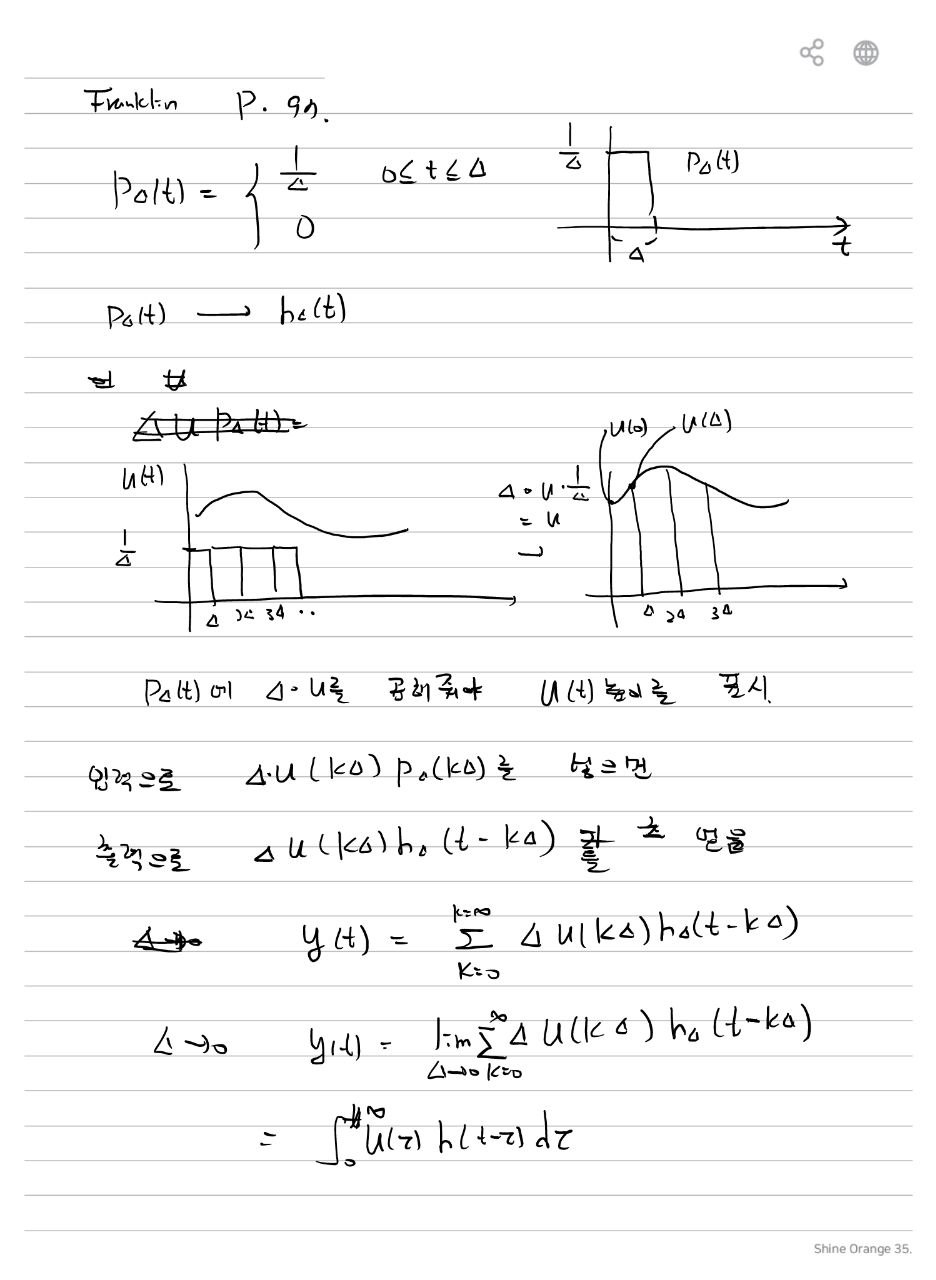 Franklin P. 90.
P_Δ(t) = { 1/Δ 0 ≤ t ≤ Δ
0
1/Δ P_Δ(t)
Δ t
P_Δ(t) → h_Δ(t)
Δ U P_Δ(t) =
u(t)
1/Δ
Δ 2Δ 3Δ ..
u(0) u(Δ)
Δ · u · 1/Δ
= u
Δ 2Δ 3Δ
P_Δ(t)에 Δ·u를 곱해줘야 U(t) 높이를 표시.
입력으로 Δ·u(kΔ) P_Δ(kΔ)를 넣으면
출력으로 Δ u(kΔ) h_Δ(t - kΔ) 를 얻음
Δ→0 y(t) = Σ_{k=0}^{k=∞} Δ U(kΔ) h_Δ(t - kΔ)
Δ→0 y(t) = lim_{Δ→0} Σ_{k=0}^{∞} Δ U(kΔ) h_Δ(t-kΔ)
= ∫_0^∞ U(τ) h(t-τ) dτ
Shine Orange 35.